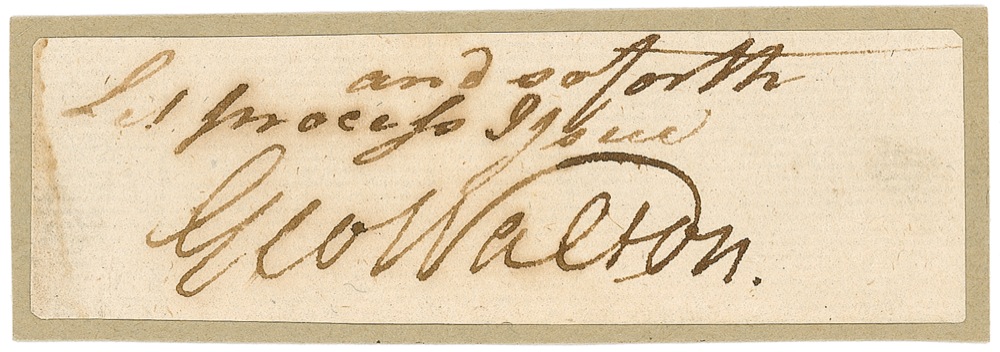 and so forth
Let process Issue
Geo Walton.